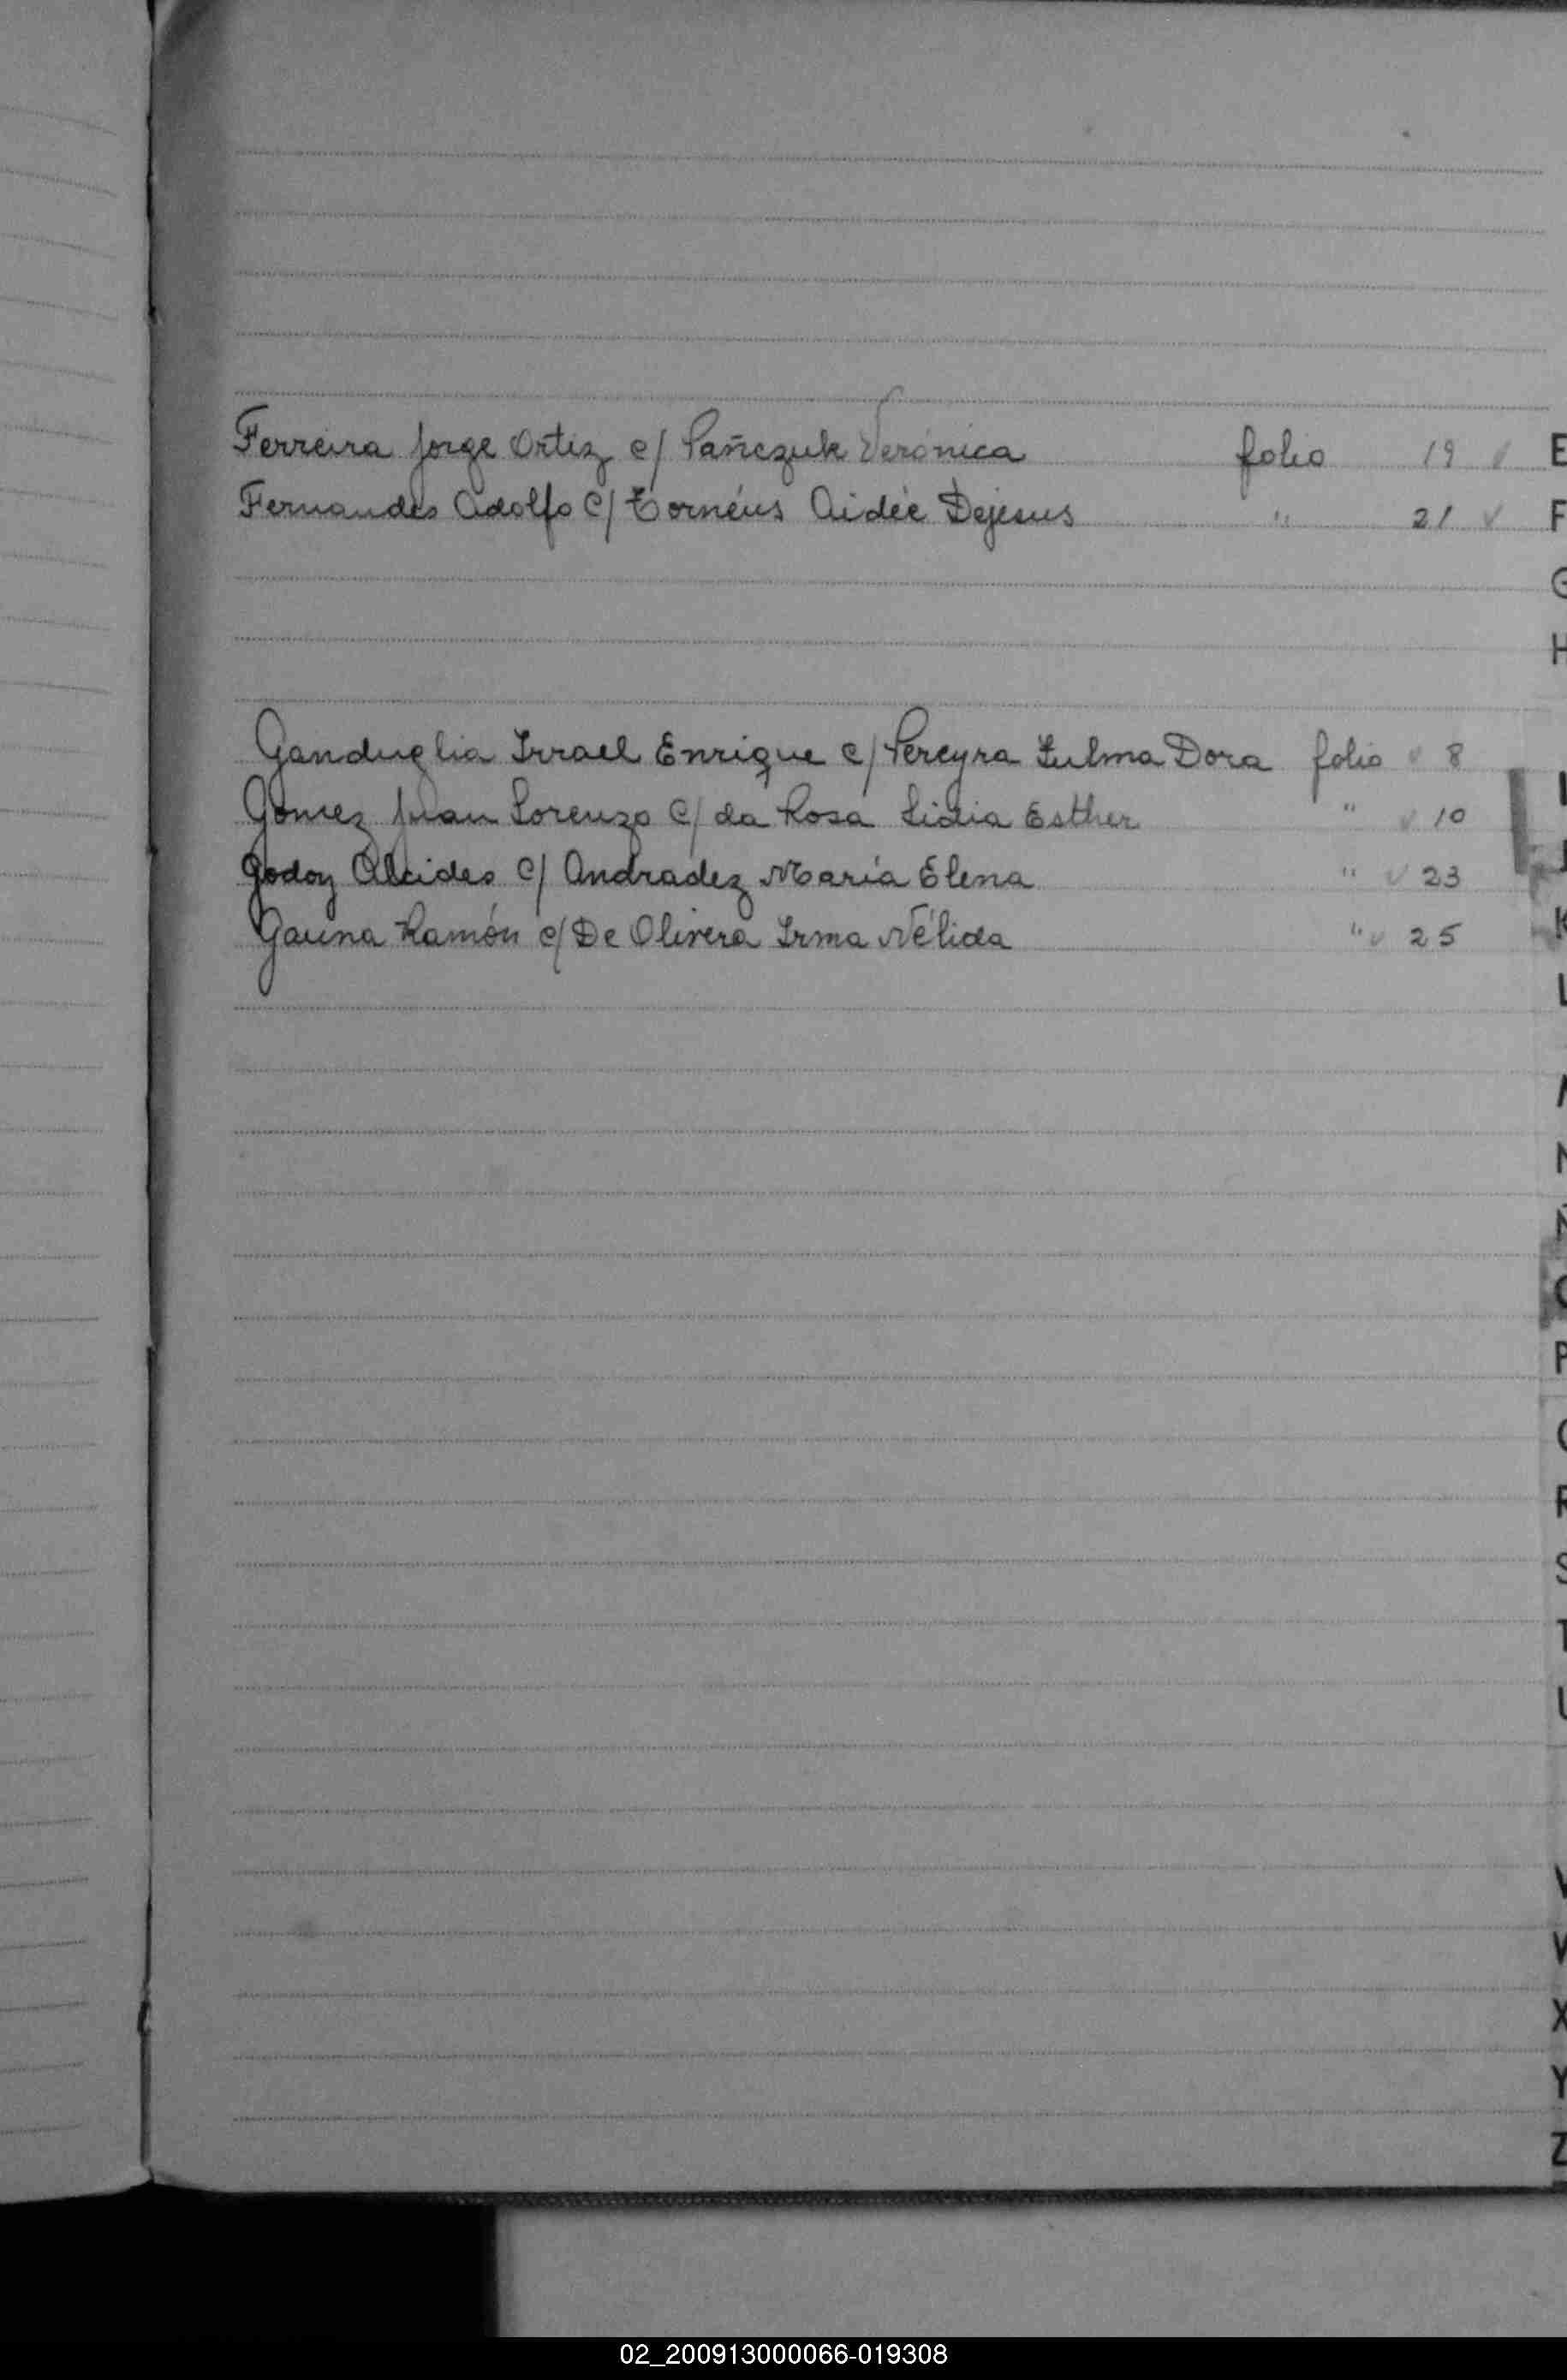 Ferreira Jorge Ortiz c/ Pañczuk Verónica folio 19 ✓
Fernandes Adolfo c/ Tornéus Aidée Dejesus " 21 ✓
Ganduglia Israel Enrique c/ Pereyra Zulma Dora folio ✓ 8
Gomez Juan Lorenzo c/ da Rosa Lidia Esther " ✓ 10
Godoy Alcides c/ Andradez María Elena " ✓ 23
Gauna Ramón c/ De Olivera Irma Nélida " ✓ 25
E
F
G
H
I
J
K
L
M
N
Ñ
O
P
Q
R
S
T
U
V
W
X
Y
Z
02_200913000066-019308